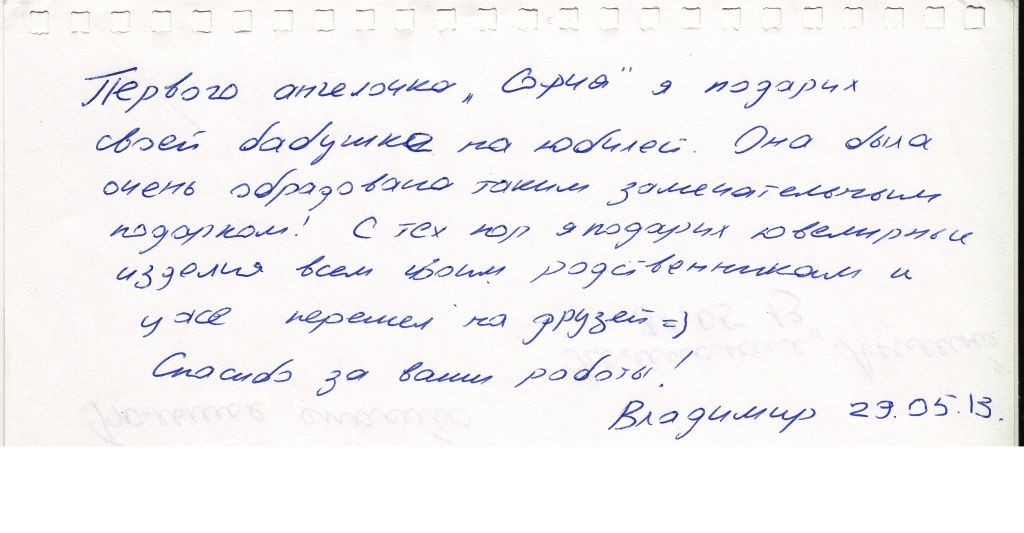 Первого ангелочка „София" я подарил
своей бабушке на юбилей. Она была
очень обрадована таким замечательным
подарком! С тех пор я подарил ювелирные
изделия всем своим родственникам и
уже перешел на друзей =)
Спасибо за ваши работы!
Владимир 29.05.13.